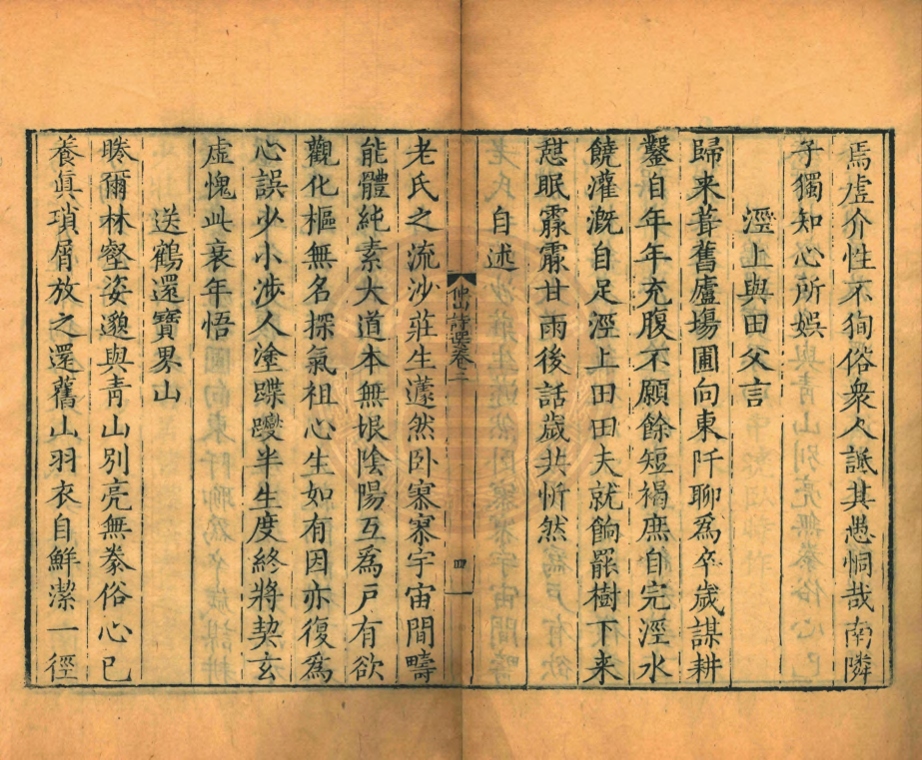 焉虚介性不狥俗衆人詆其愚恫哉南隣
子獨知心所娛
涇上與田父言
歸來葺舊廬塲圃向東阡聊爲卒歲謀耕
鑿自年年充腹不願餘短褐庶自完涇水
饒灌漑自足涇上田田夫就餉罷樹下来
憇眠霢霂甘雨後話歲共忻然
自述
仲山詩選卷三
四
老氏之流沙莊生蘧然卧寥寥宇宙間疇
能體純素大道本無垠陰陽互爲戸有欲
觀化樞無名探氣祖心生如有因亦復爲
心誤少小涉人塗蹀躞半生度終將契玄
虚愧此衰年悟
送鶴還寶界山
睠爾林壑姿邈與青山别亮無豢俗心已
養眞瑣屑放之還舊山羽衣自鮮潔一徑